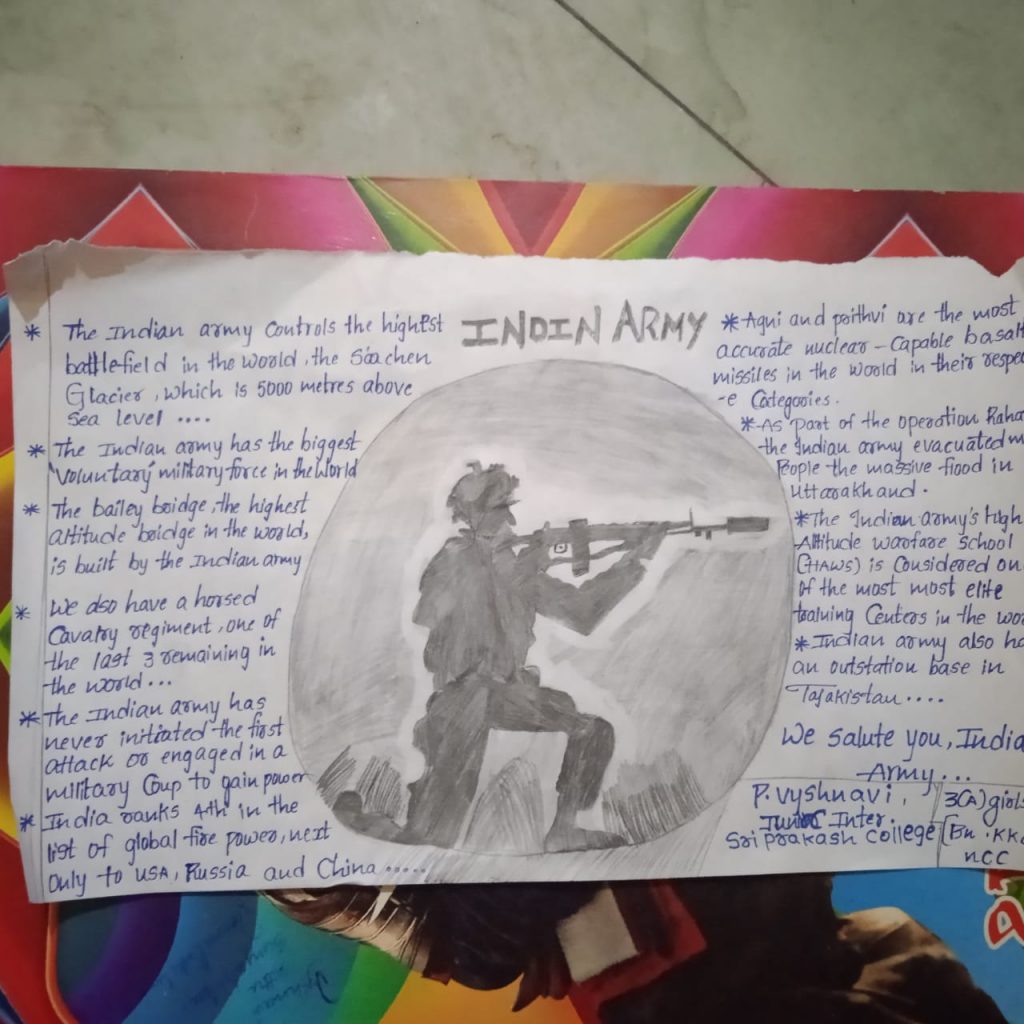 INDIN ARMY
* The Indian army controls the highest
battlefield in the world, the Siachen
Glacier, which is 5000 metres above
Sea level ....
* The Indian army has the biggest
"Voluntary" military force in the World
* The bailey bridge, the highest
altitude bridge in the world,
is built by the Indian army
* We also have a horsed
Cavalry regiment, one of
the last 3 remaining in
the world...
* The Indian army has
never initiated the first
attack or engaged in a
military Coup to gain power
* India ranks 4th in the
list of global fire power, next
Only to USA, Russia and China.....
* Agni and prithvi are the most
accurate nuclear - Capable
missiles in the world in their respe
-e Categories.
* As part of the operation Raha
the Indian army evacuated m
People the massive flood in
Uttarakhand.
* The Indian army's High
Altitude warfare School
(HAWS) is Considered on
Of the most most elite
training Centers in the wor
* Indian army also ha
an outstation base in
Tajakistan....
We salute you, India
Army...
P. Vyshnavi,
Inter
Sri Prakash College
3(A) girls
Bn. KK
NCC